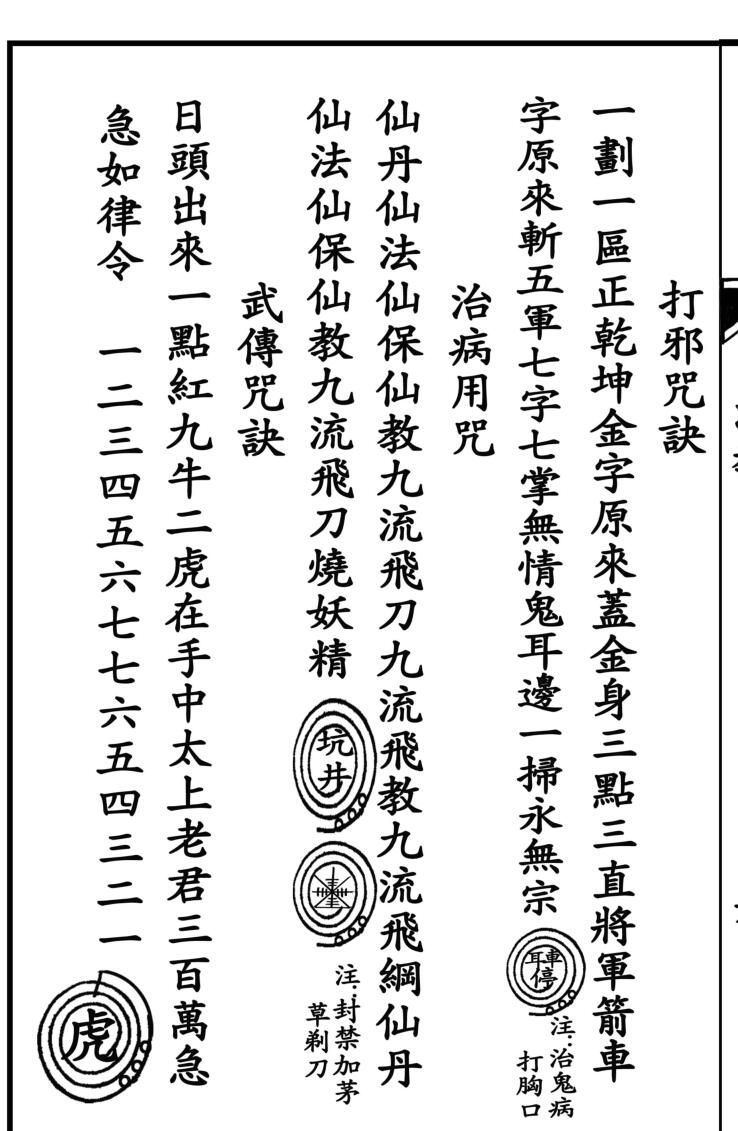 打邪咒訣
一劃一區正乾坤金字原來蓋金身三點三直將軍箭車
字原來斬五軍七字七掌無情鬼耳邊一掃永無宗
車耳停
注：治鬼病
打胸口
治病用咒
仙丹仙法仙保仙教九流飛刀九流飛教九流飛綱仙丹
仙法仙保仙教九流飛刀燒妖精
坑井
注：封禁加茅
草剃刀
武傳咒訣
日頭出來一點紅九牛二虎在手中太上老君三百萬急
急如律令　一二三四五六七七六五四三二一
虎